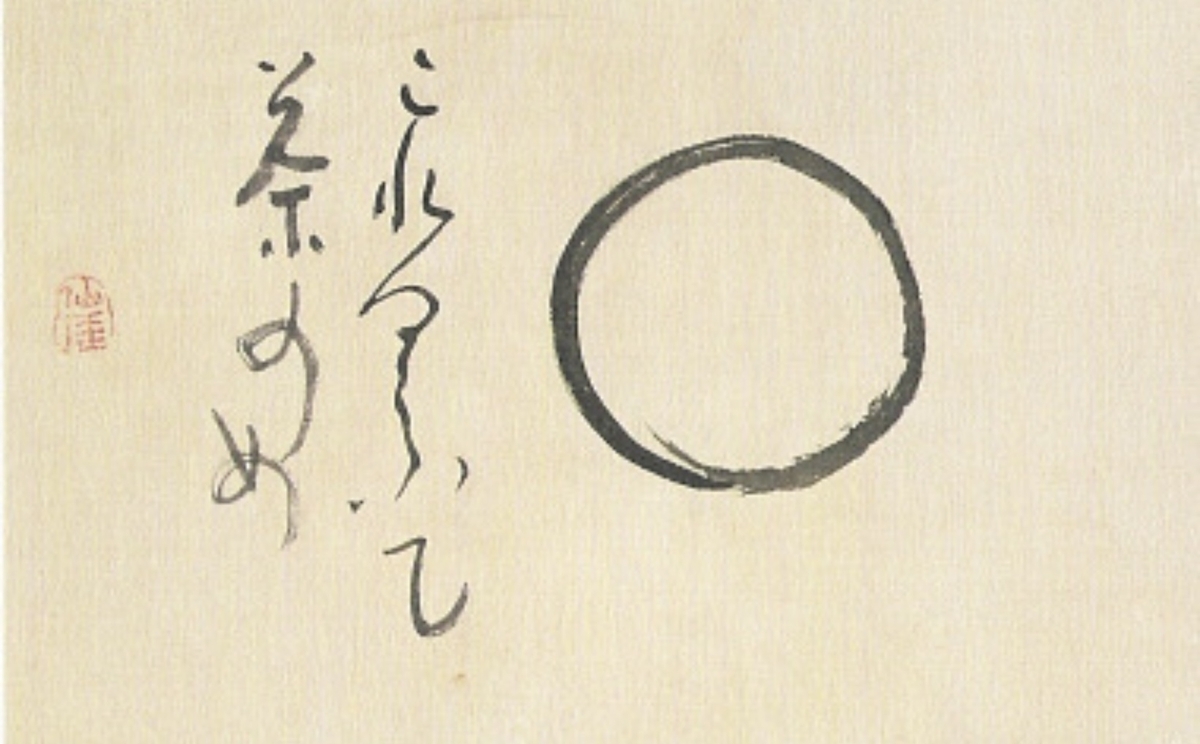 これくふて
茶のめ
仙厓